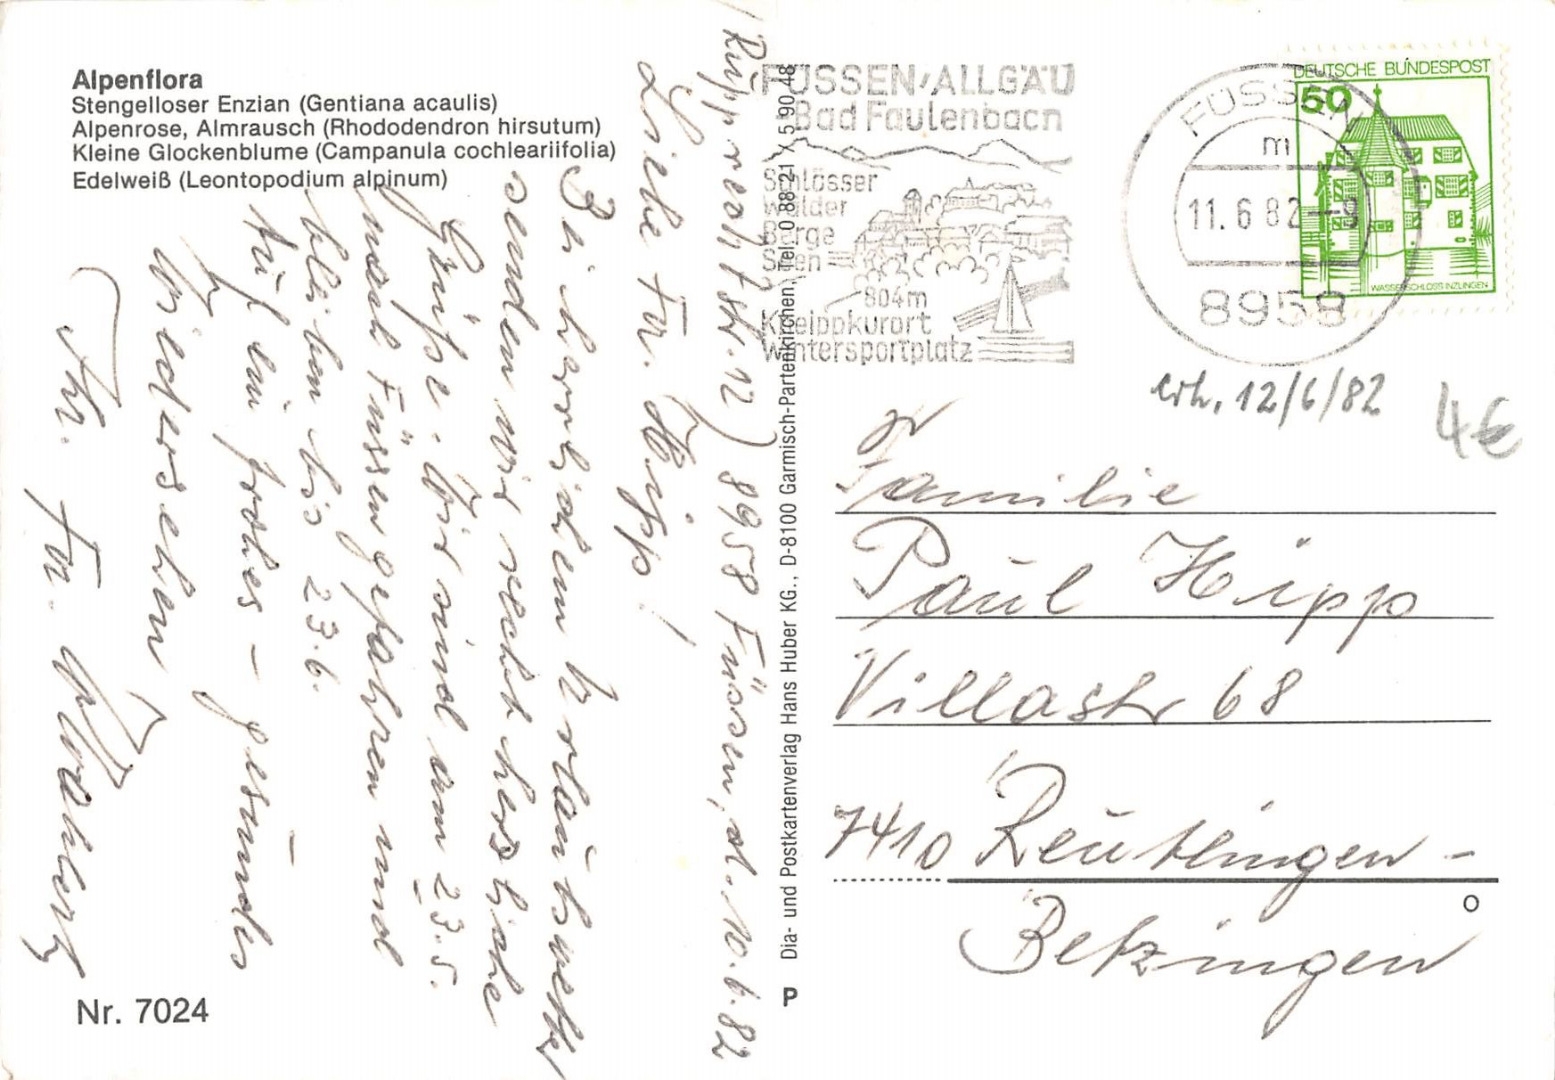 Alpenflora
Stengelloser Enzian (Gentiana acaulis)
Alpenrose, Almrausch (Rhododendron hirsutum)
Kleine Glockenblume (Campanula cochleariifolia)
Edelweiß (Leontopodium alpinum)
(Rupprechtstr. 12) 8958 Füssen, d. 10.6.82
Liebe Fa. Hipp!
Bei herrlichem Urlaubswetter
senden wir recht herzliche
Grüße. Wir sind am 23.5.
nach Füssen gefahren und
bleiben bis 23.6.
Auf ein frohes – gesundes
Wiedersehen
Ihr. Fa.
Nr. 7024
Dia- und Postkartenverlag Hans Huber KG., D-8100 Garmisch-Partenkirchen, Tel. 0 88 21 / 5 90 48
P
FÜSSEN/ALLGÄU
Bad Faulenbach
Schlösser
Wälder
Berge
Seen
804m
Kneippkurort
Wintersportplatz
DEUTSCHE BUNDESPOST
50
WASSERSCHLOSS INZLINGEN
FÜSSEN
m
11.6.82-9
8958
erh. 12/6/82
4€
Familie
Paul Hipp
Villastr 68
7410 Reutlingen -
Betzingen